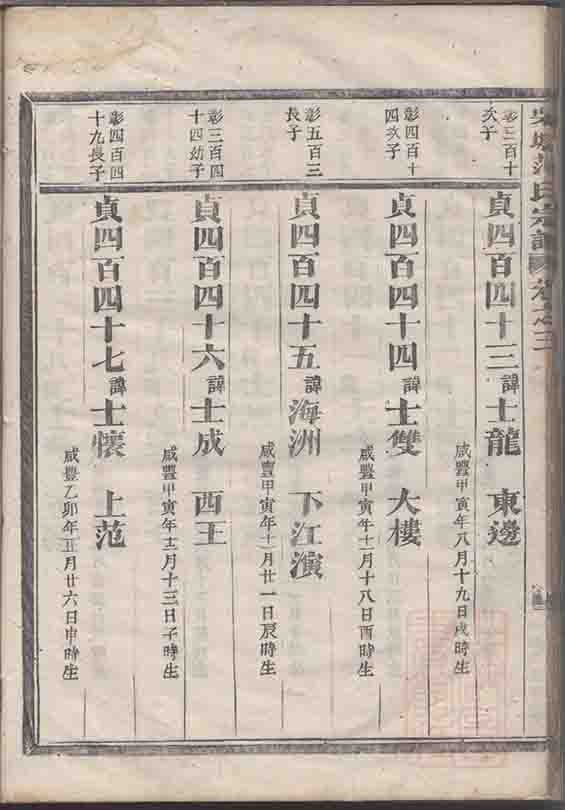 范氏宗譜 卷之三
彰三百十
次子
貞四百四十三 諱士龍 東邊
咸豐甲寅年八月十九日戌時生
彰四百十
四次子
貞四百四十四 諱士雙 大樓
咸豐甲寅年十一月十八日酉時生
彰五百三
長子
貞四百四十五 諱海洲 下江演
咸豐甲寅年十一月廿一日辰時生
彰三百四
十四幼子
貞四百四十六 諱士成 西王
咸豐甲寅年十二月十三日子時生
彰四百四
十九長子
貞四百四十七 諱士懷 上范
咸豐乙卯年正月廿六日申時生